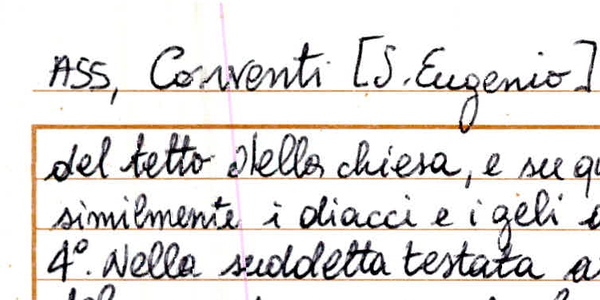 ASS, Conventi [S. Eugenio]
del tetto della chiesa, e su
similmente i diacci e i geli
4°. Nella suddetta testata